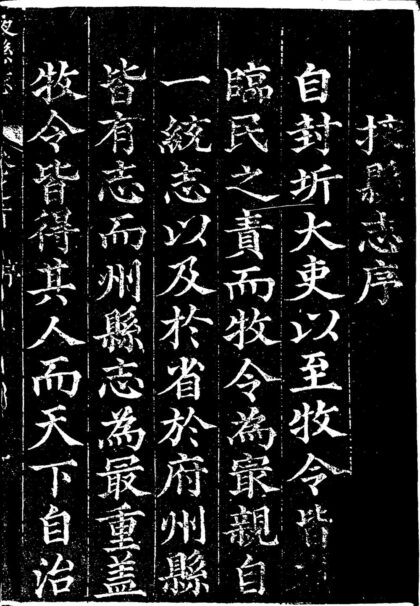 掖縣志序
自封圻大吏以至牧令皆
臨民之責而牧令為㝡親自
一統志以及扵省於府州縣
皆有志而州縣志為最重盖
牧令皆得其人而天下自治
縣志 序